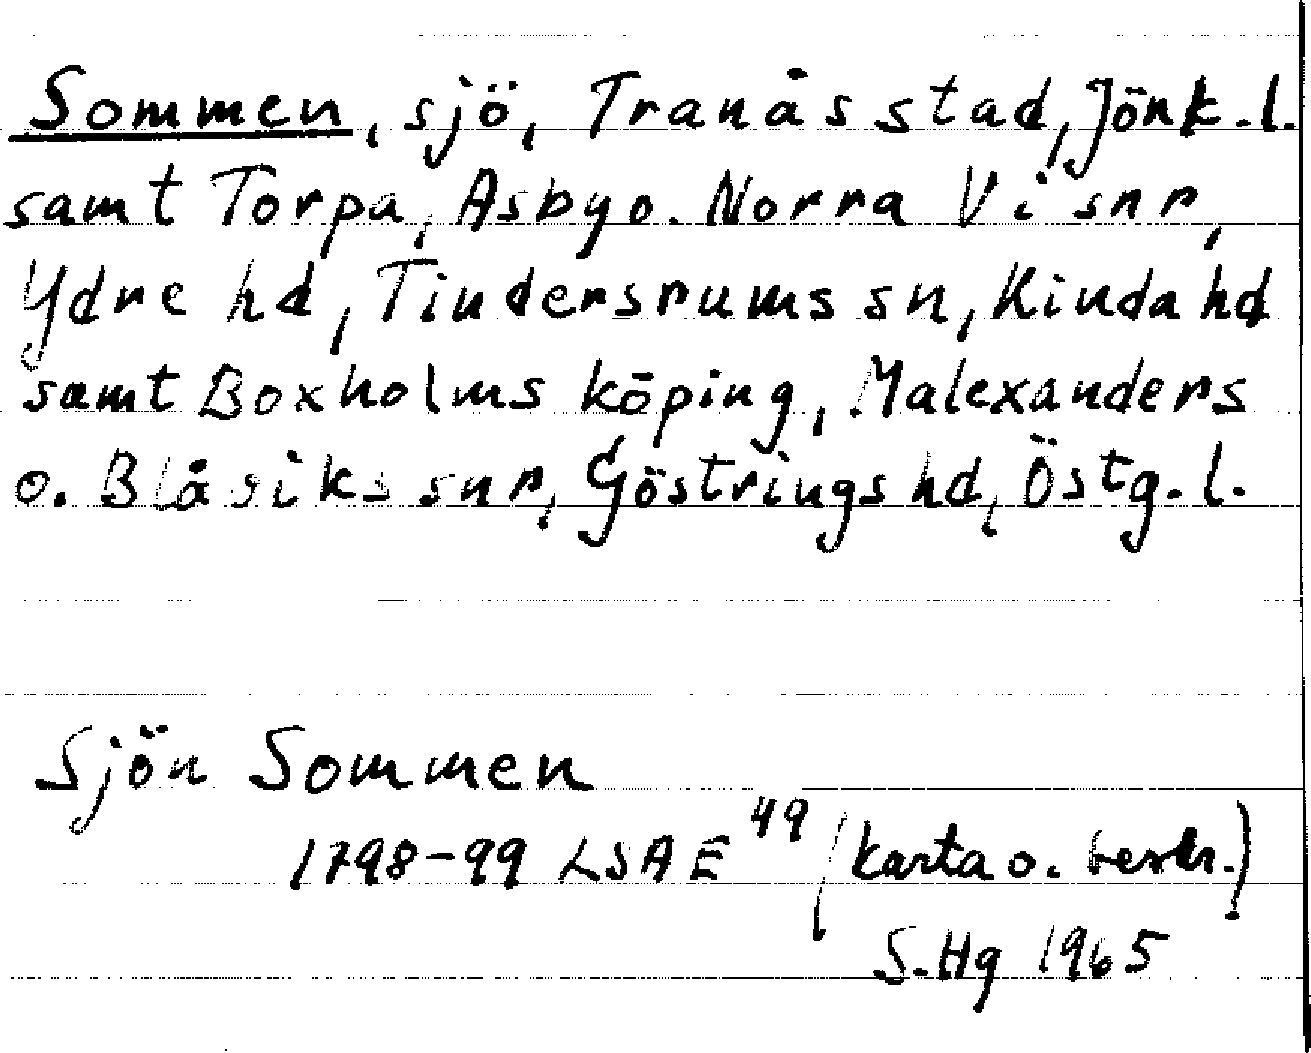 Sommen, sjö, Tranås stad, Jönk. l.
samt Torpa, Asby o. Norra Vi snr,
Ydre hd, Tindersrums sn, Kinda hd
samt Boxholms köping, Malexanders
o. Blåsiks snr, Göstrings hd, Östg. l.
Sjön Sommen
1798-99 LSA E 49 (karta o. beskr.)
S. Hg 1965